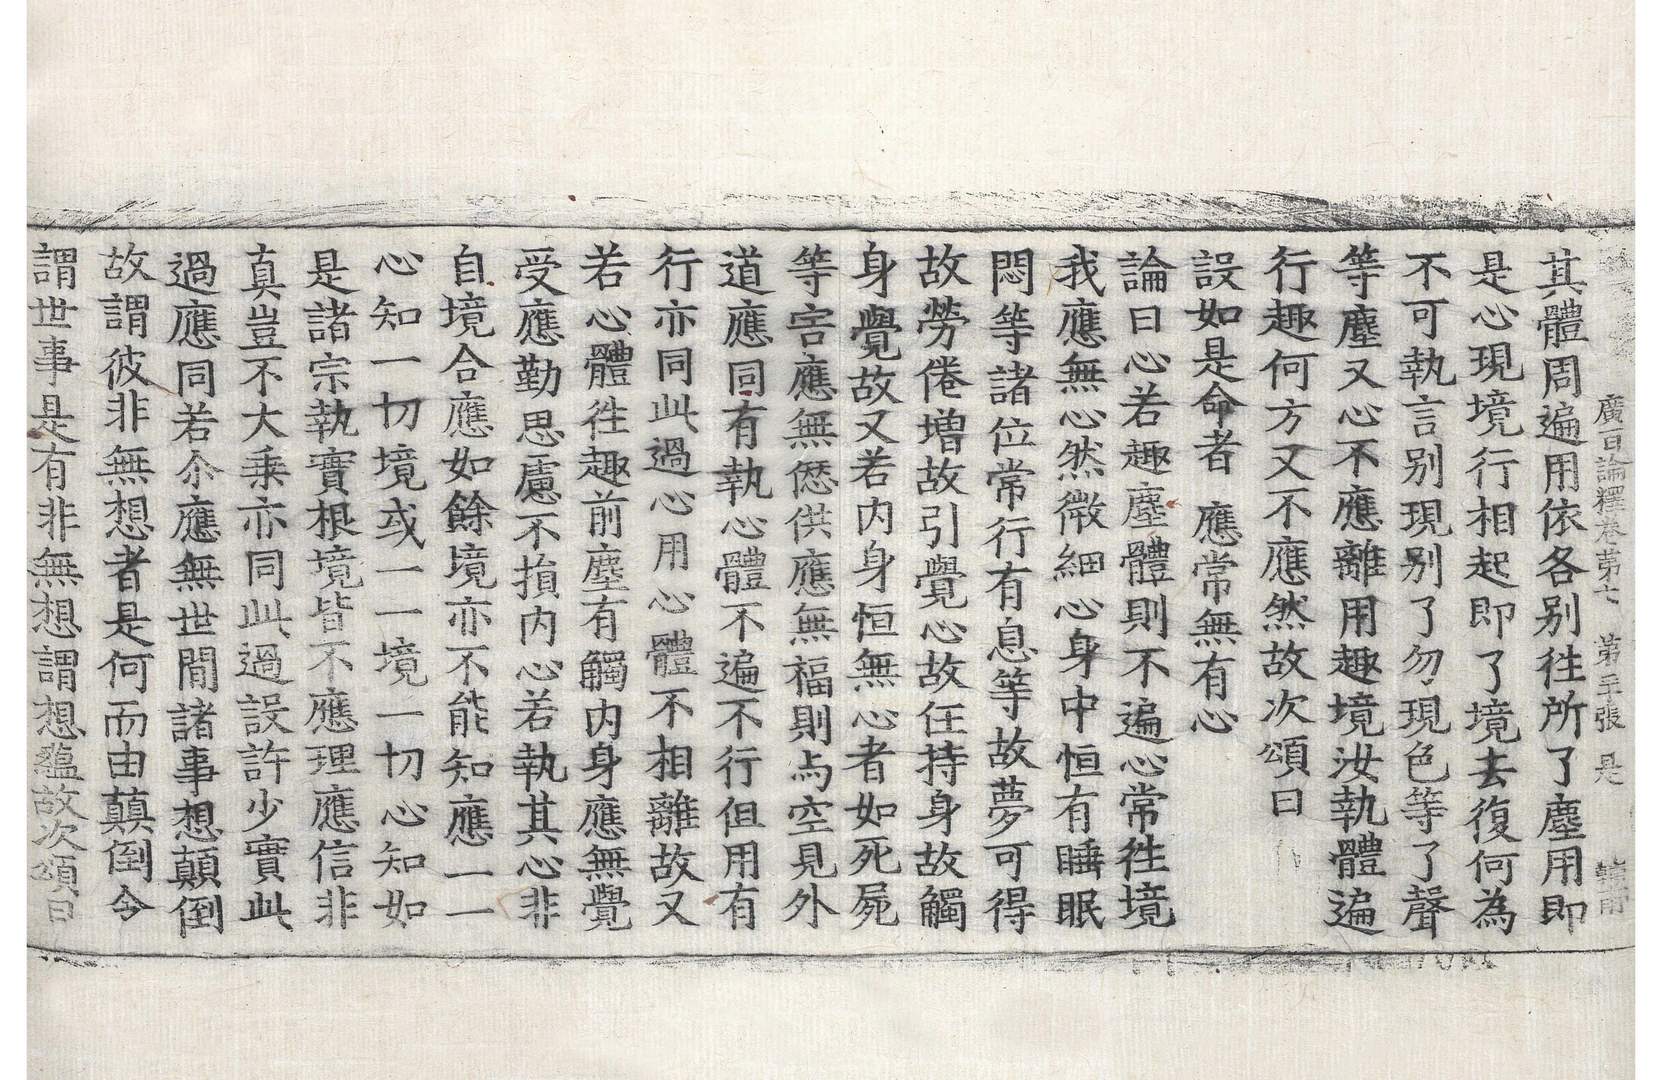 廣百論釋卷第七 第二張 是
其體周遍用依各別徃所了塵用即
是心現境行相起即了境去復何為
不可執言别現别了勿現色等了聲
等塵又心不應離用趣境汝執體遍
行趣何方又不應然故次頌曰
設如是命者 應常無有心
論曰心若趣塵體則不遍心常徃境
我應無心然微細心身中恒有睡眠
悶等諸位常行有息等故夢可得
故勞倦增故引覺心故任持身故觸
身覺故又若内身恒無心者如死屍
等害應無𠎝供應無福則与空見外
道應同有執心體不遍不行但用有
行亦同此過心用心體不相離故又
若心體徃趣前塵有觸内身應無覺
受應勤思慮不損内心若執其心非
自境合應如餘境亦不能知應一一
心知一切境或一一境一切心知如
是諸宗執實根境皆不應理應信非
真豈不大乘亦同此過設許少實此
過應同若尒應無世間諸事想顛倒
故謂彼非無想者是何而由顛倒今
謂世事是有非無想謂想蘊故次頌曰